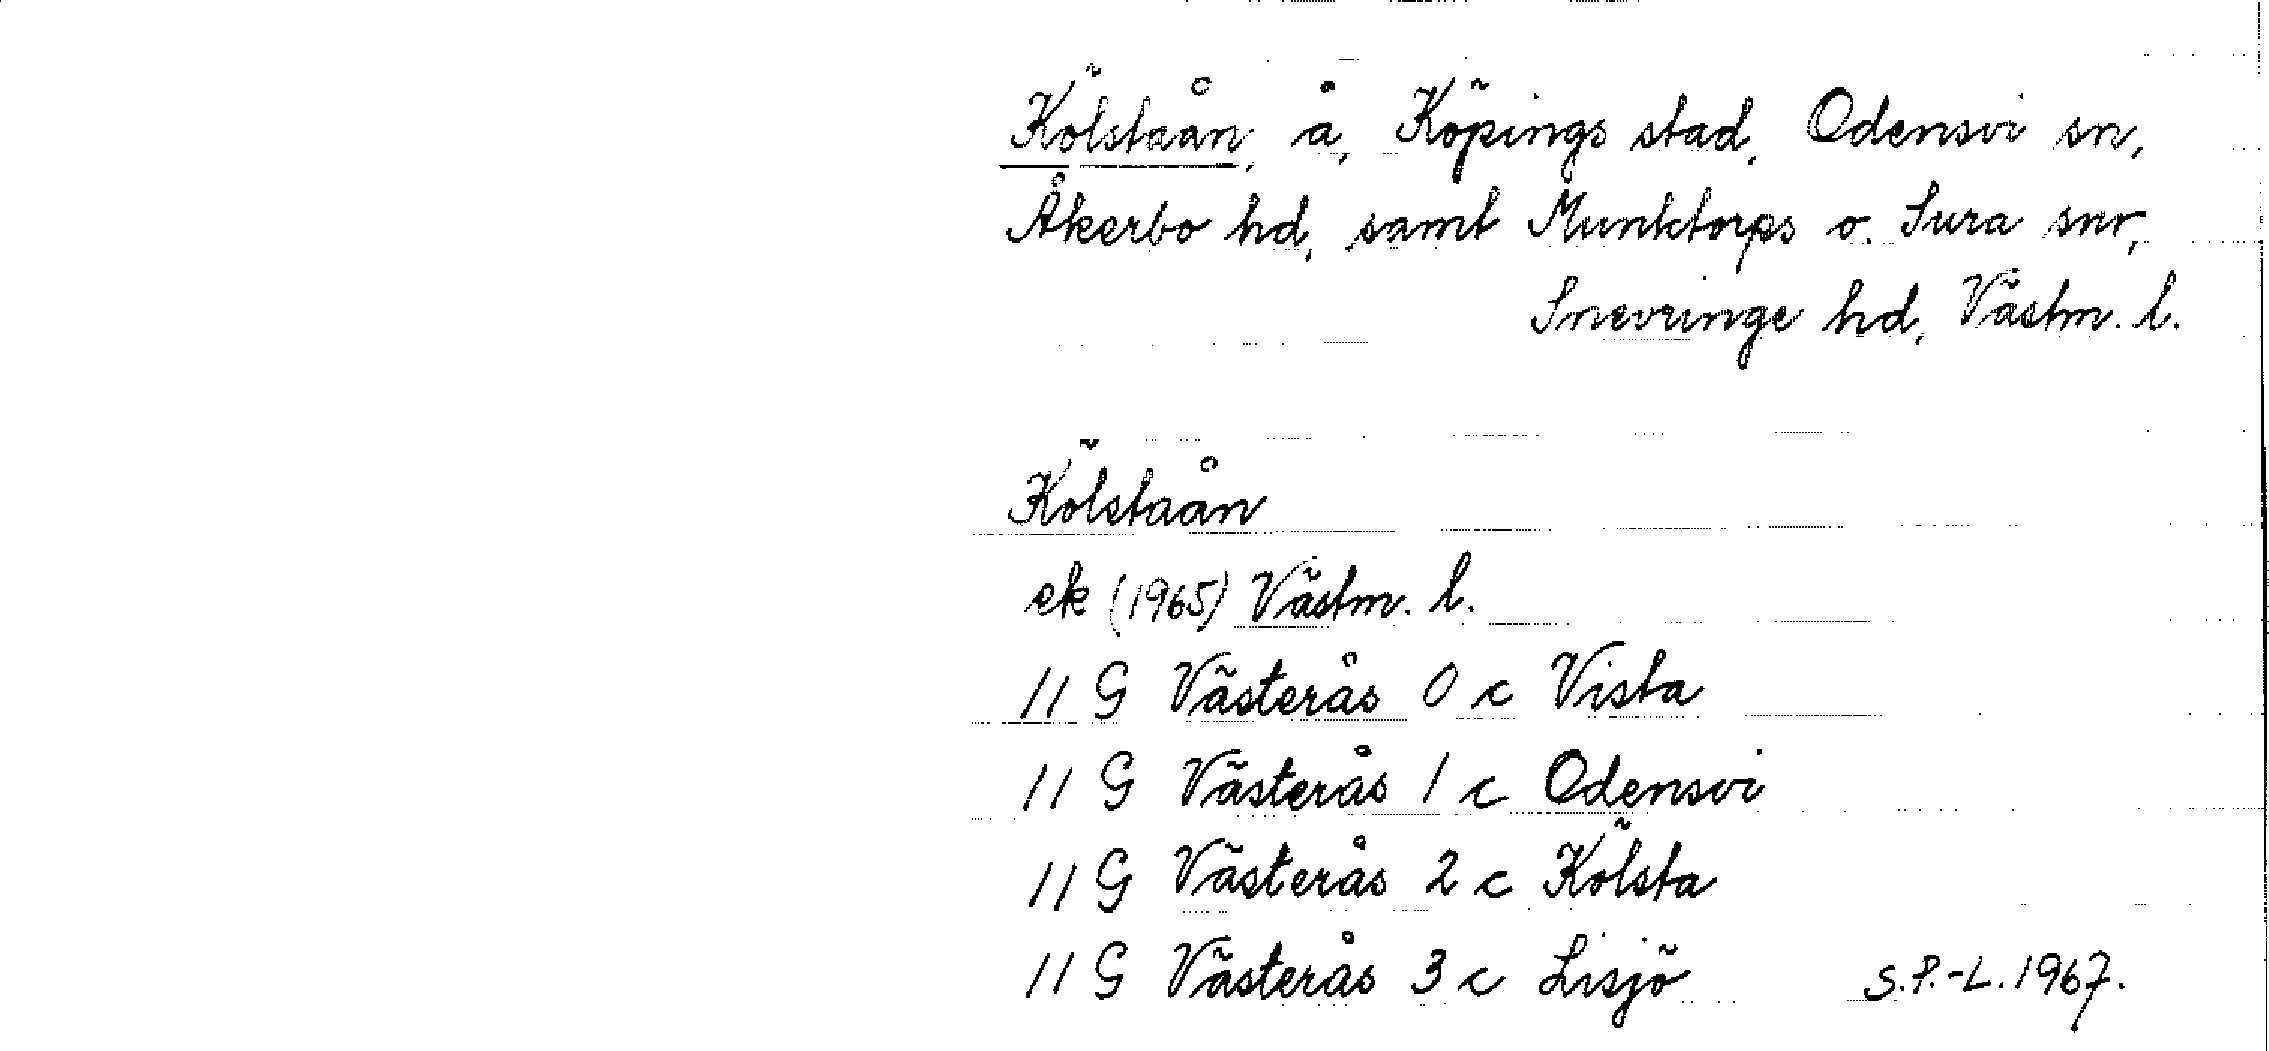 Kölstaån, å, Köpings stad, Odensvi sn,
Åkerbo hd, samt Munktorps o. Sura snr,
Snevringe hd, Västm. l.
Kölstaån
ek (1965) Västm. l.
11 G Västerås 0 c Vista
11 G Västerås 1 c Odensvi
11 G Västerås 2 c Kölsta
11 G Västerås 3 c Lisjö S.P.-L. 1967.